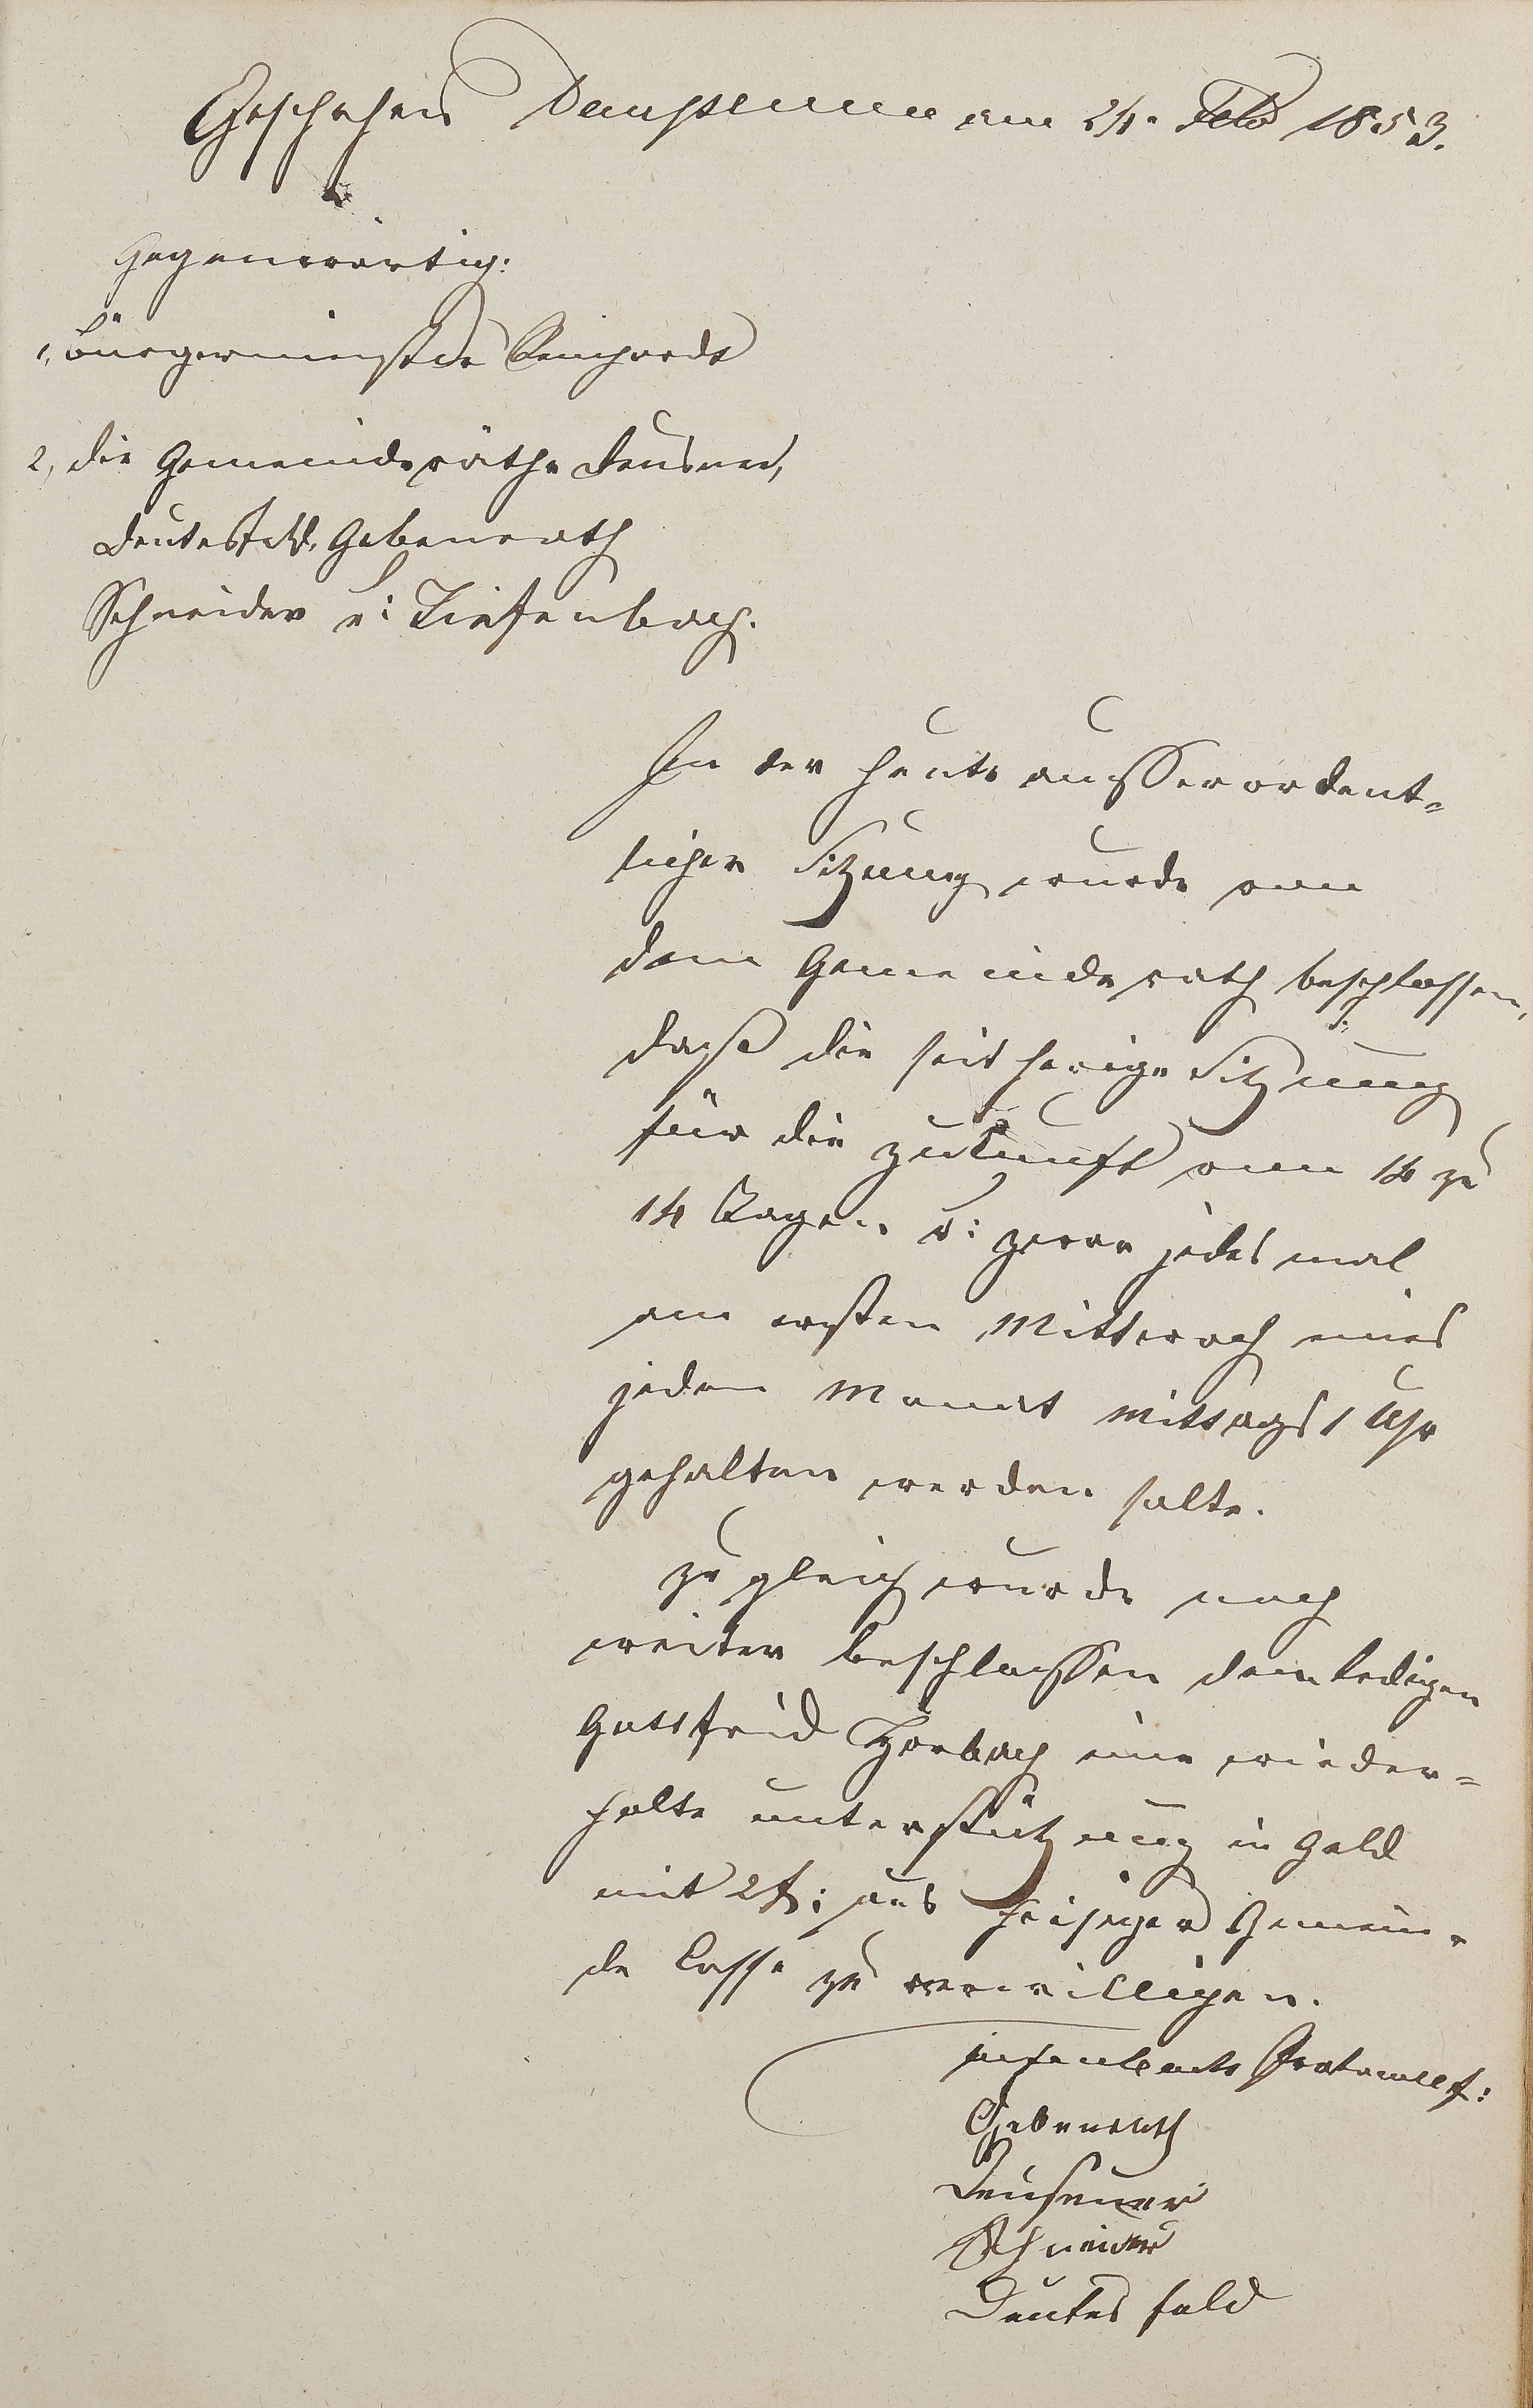 Geschehen Dausenau am 24. Feb 1853.
Gegenwärtig:
1, Bürgermeister Reinhardt
2, die Gemeinderäthe Deusner,
Deutesfeld, Gebenroth
Schneider u: Tiefenbach.
In der heute ausserordent-
licher Sitzung wurde von
dem Gemeinderath beschlossen,
daß die seitherige Sitzung
für die zukunft von 14 zu
14 Tagen u: zwar jedes mal
am ersten Mittwoch eines
jeden Monat Mittags 1 Uhr
gehalten werden solte.
zu gleich wurde noch
weiter beschlossen dem ledigen
Gottfried Horbach eine wieder-
holte unterstützung in Geld
mit 2f: aus hiesiger Gemein-
de Casse zu verwilligen.
Gebenroth
Deusener
Schneider
Deutesfeld